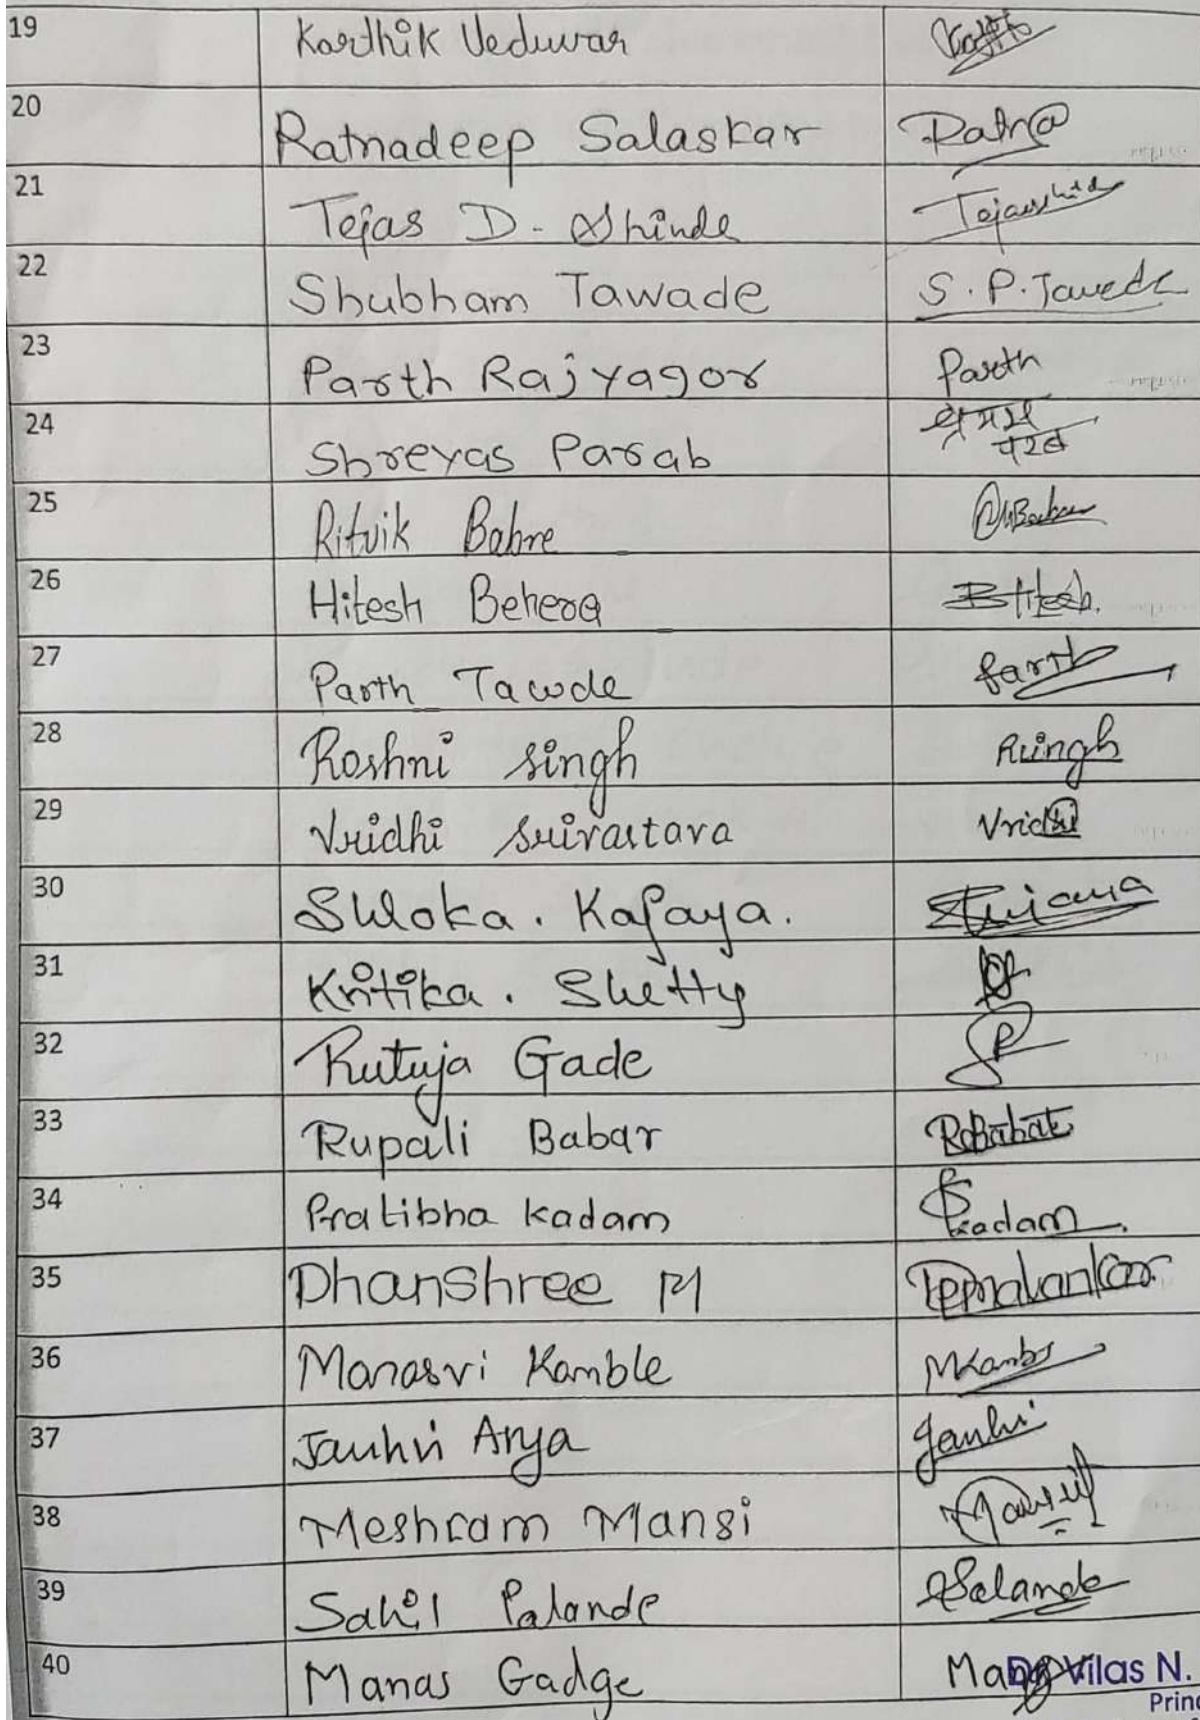 19 Karthik Veduwar
20 Ratnadeep Salaskar Ratn@
21 Tejas D. Shinde
22 Shubham Tawade S.P.Tawede
23 Parth Rajyagor Parth
24 Shreyas Parab श्रेयस
परब
25 Ritvik Babre
26 Hitesh Behera Hitesh.
27 Parth Tawde Parth
28 Roshni Singh RSingh
29 Vridhi Srivastava Vridhi
30 Shloka. Kapaya.
31 Kritika. Shetty
32 Rutuja Gade
33 Rupali Babar RBabar
34 Pratibha Kadam PKadam.
35 Dhanshree M
36 Manasvi Kamble
37 Janhvi Arya Janhvi
38 Meshram Mansi Mansi
39 Sahil Palande Palande
40 Manas Gadge Vilas N.
Princ